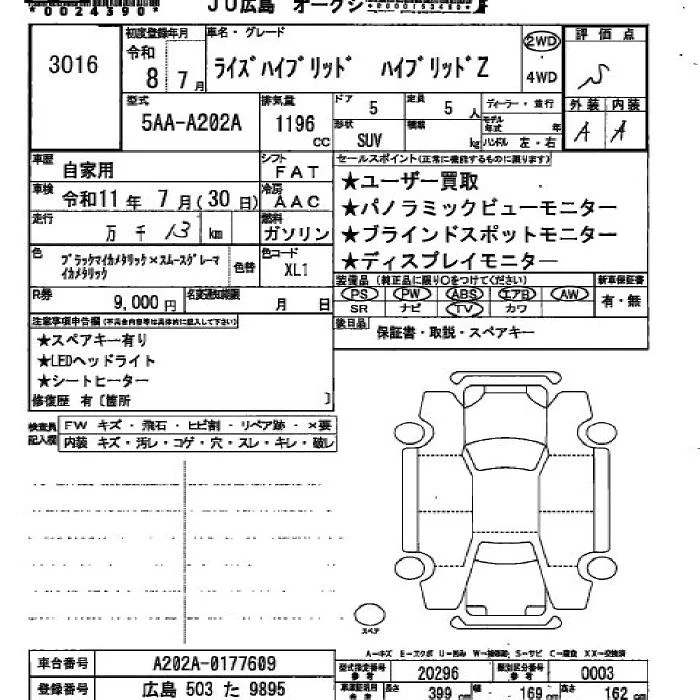 *0024390*
JU広島 オークシ
3016
初度登録年月
令和
8 7月
車名・グレード
ライズハイブリッド ハイブリッドZ
2WD
4WD
評価点
S
外装 内装
A A
型式
5AA-A202A
排気量
1196 cc
ドア 5
定員 5 人
形状 SUV
積載 kg
ディーラー・並行
モデル年式 年
ハンドル 左・右
車歴 自家用
シフト FAT
車検 令和11年 7月(30日)
冷房 AAC
走行 万 千 13 km
燃料 ガソリン
色 ブラックマイカメタリック×スムースグレーマイカメタリック
色替
色コード XL1
R券 9,000円
名変通知期限 月 日
セールスポイント(正常に機能するものに限ります)
★ユーザー買取
★パノラミックビューモニター
★ブラインドスポットモニター
★ディスプレイモニター
装備品(純正品に限り○をつけてください)
新車保証書
PS PW ABS エアB AW
SR ナビ TV カワ
有・無
後日品 保証書・取説・スペアキー
注意事項申告欄(不具合内容等は具体的に記入して下さい)
★スペアキー有り
★LEDヘッドライト
★シートヒーター
修復歴 有〔箇所 〕
検査員記入欄
FW キズ・飛石・ヒビ割・リペア跡・×要
内装 キズ・汚レ・コゲ・穴・スレ・キレ・破レ
スペア
A-キズ E-エクボ U-凹み W-補修跡 S-サビ C-腐食 XX-交換済
車台番号 A202A-0177609
型式指定番号 参考 20296
類別区分番号 参考 0003
登録番号 広島 503 た 9895
車庫証明用 参考 長さ 399 cm 幅 169 cm 高さ 162 cm